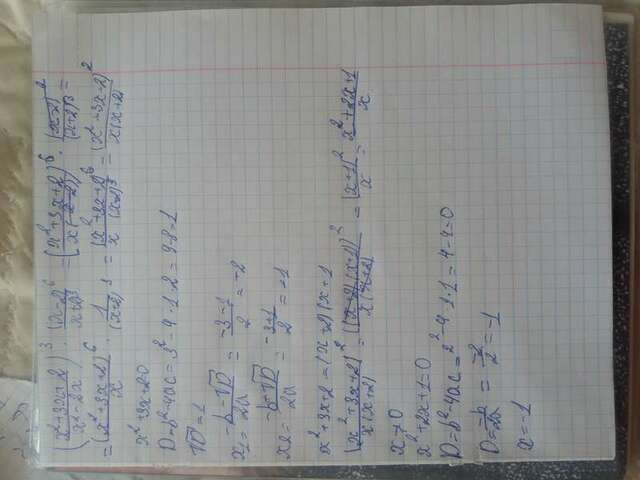 ((x²+3x+2)/(x²-2x))³ · (x-2)⁶/(x+2)³ = ((x²+3x+2)/(x(x-2)))⁶ · (x-2)²/(x+2)³ =
= ((x²+3x+2)/x)⁶ · 1/(x+2)³ = (x²+3x+2)⁶/(x (x+2)³) = (x²+3x+2)²/(x(x+2))
x²+3x+2=0
D=b²-4ac=3²-4·1·2=9-8=1
√D=1
x1=(-b-√D)/2a=(-3-1)/2=-2
x2=(-b+√D)/2a=(-3+1)/2=-1
x²+3x+2=(x+2)(x+1
(x²+3x+2)²/(x(x+2))=((x+2)(x+1))²/(x(x+2))=(x+1)²/x=(x²+2x+1)/x
x≠0
x²+2x+1=0
D=b²-4ac=2²-4·1·1=4-4=0
D=-b/2a=-2/2=-1
x=-1